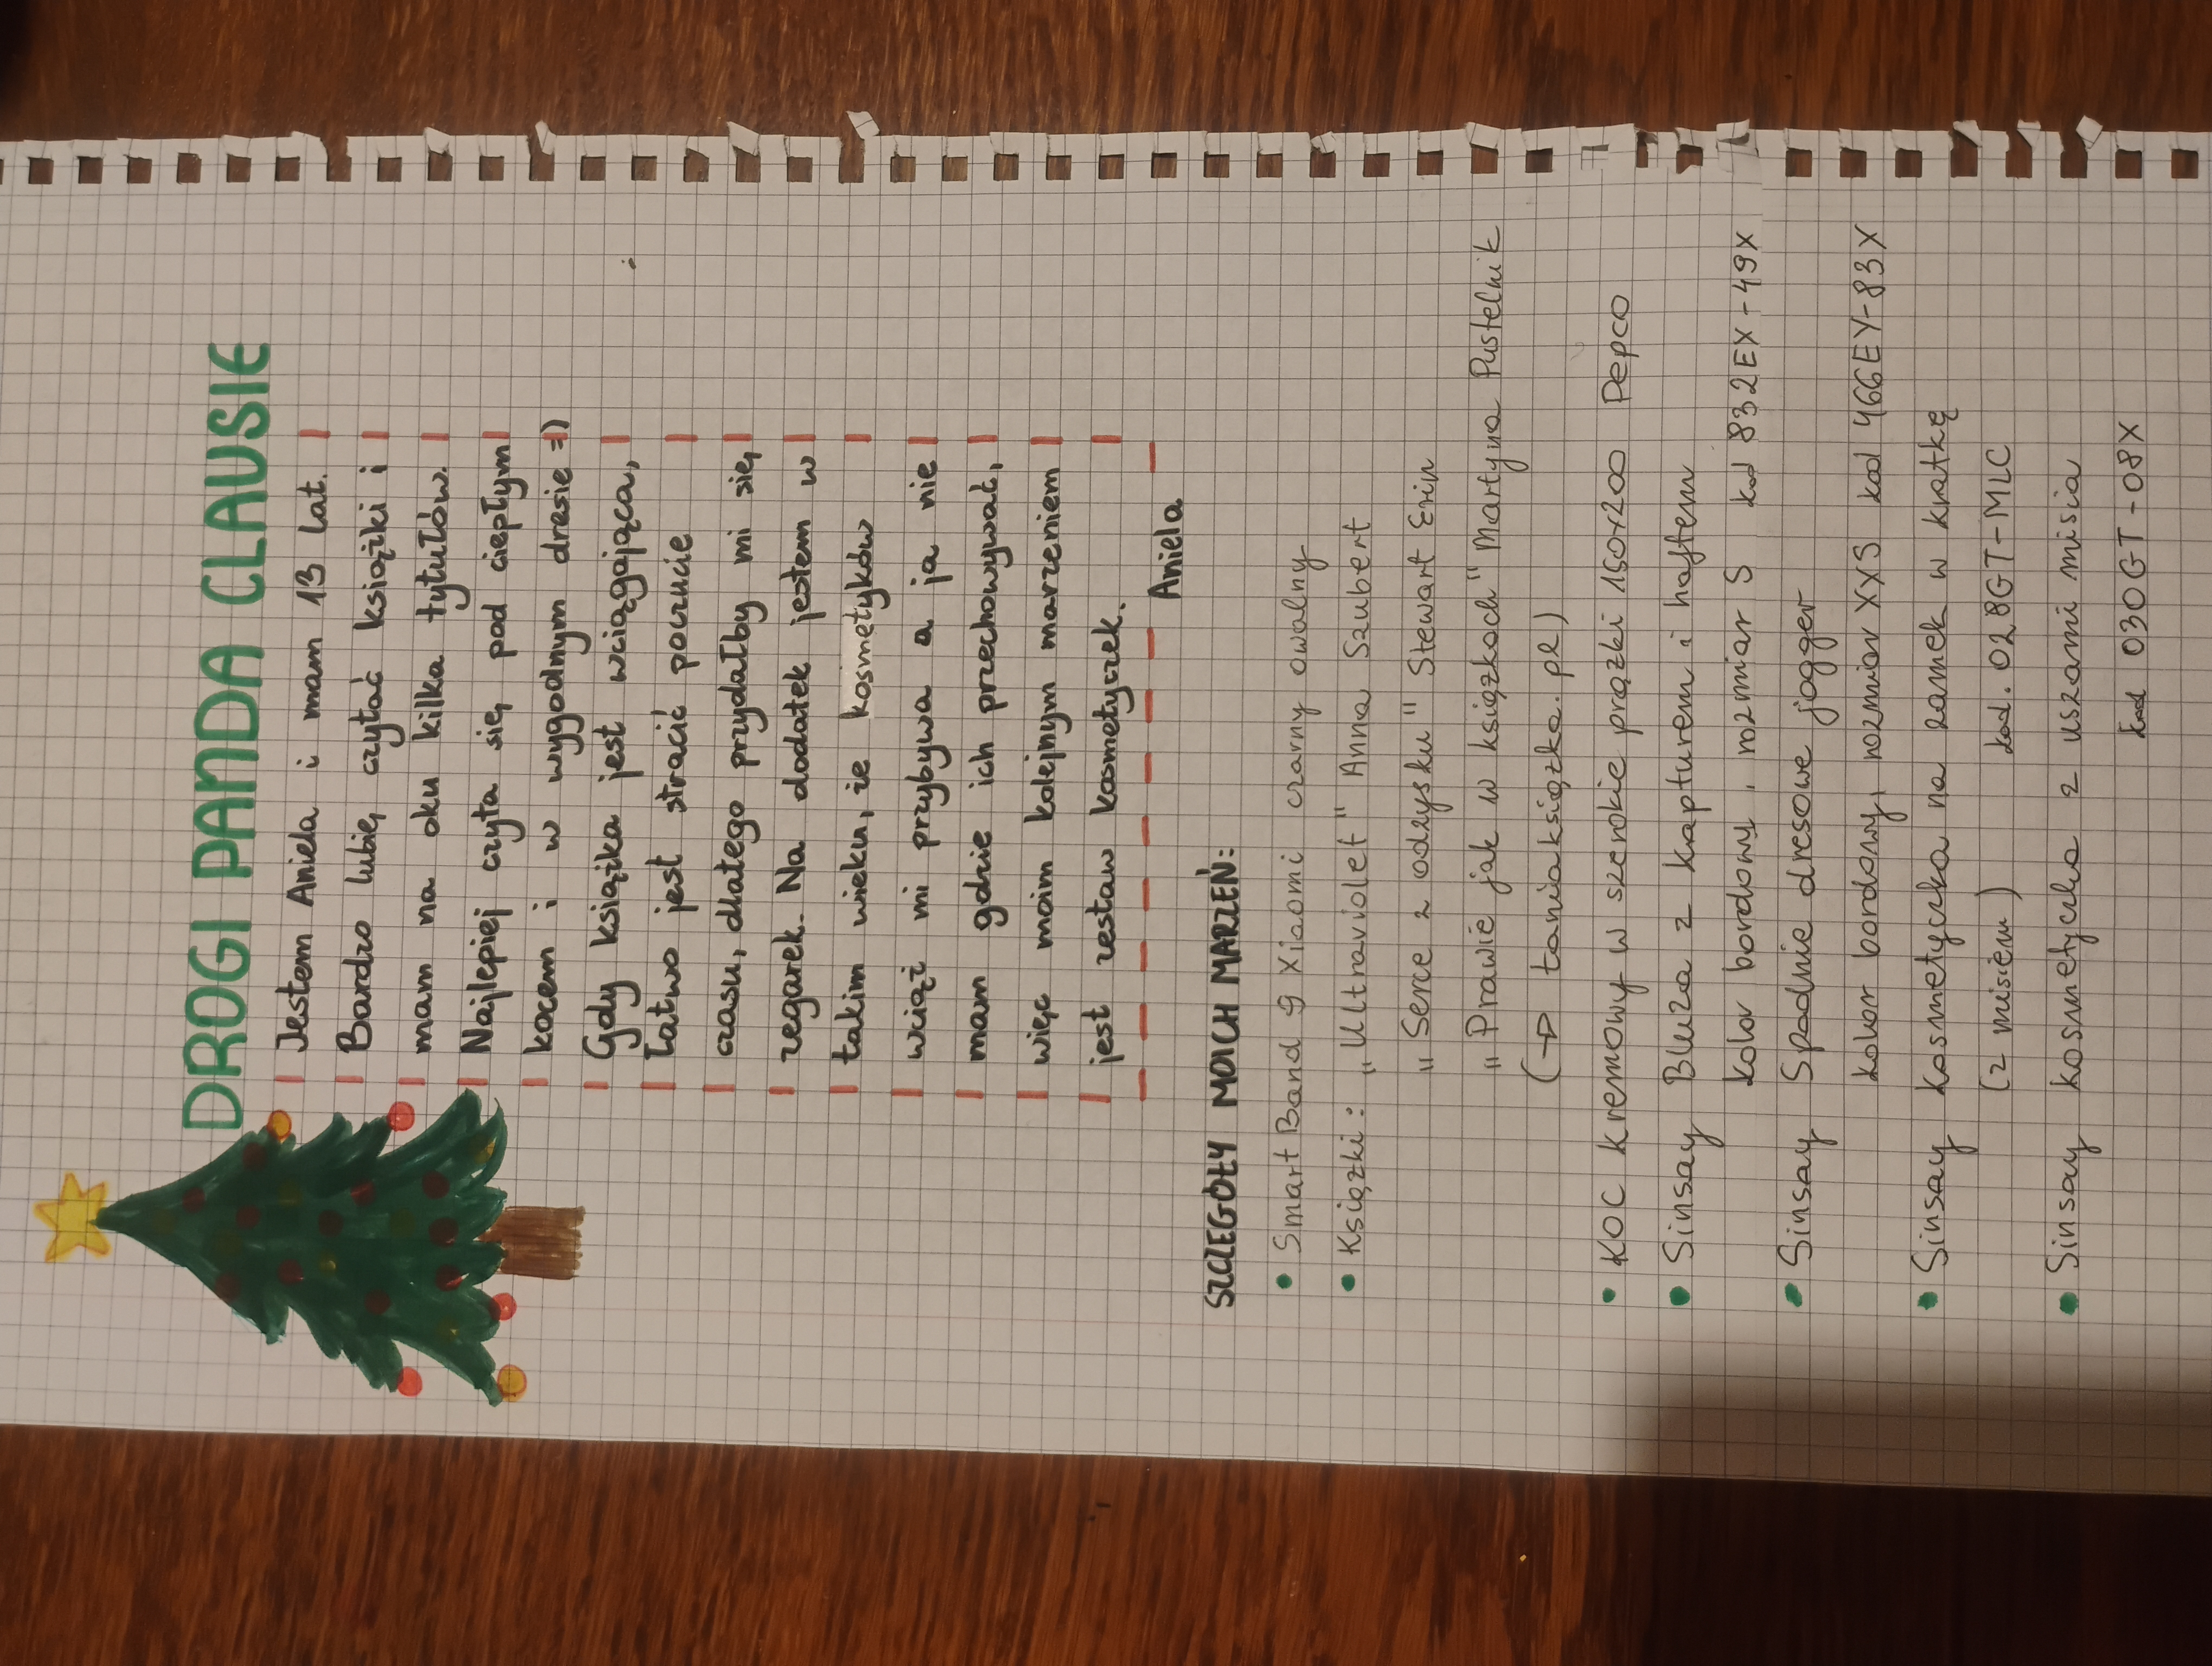 DROGI PANDA CLAUSIE
Jestem Aniela i mam 13 lat.
Bardzo lubię czytać książki i
mam na oku kilka tytułów.
Najlepiej czyta się pod ciepłym
kocem i w wygodnym dresie =)
Gdy książka jest wciągająca,
łatwo jest stracić poczucie
czasu, dlatego przydałby mi się
zegarek. Na dodatek jestem w
takim wieku, że kosmetyków
wciąż mi przybywa a ja nie
mam gdzie ich przechowywać,
więc moim kolejnym marzeniem
jest zestaw kosmetyczek.
Aniela
SZCZEGÓŁY MOICH MARZEŃ:
• Smart Band 9 Xiaomi czarny owalny
• Książki: „Ultraviolet" Anna Szubert
„Serce z odzysku" Stewart Erin
„Prawie jak w książkach" Martyna Pustelnik
(→ taniaksiążka.pl)
• KOC kremowy w szerokie prążki 160x200 Pepco
• Sinsay Bluza z kapturem i haftem
kolor bordowy, rozmiar S kod 832EX-49X
• Sinsay Spodnie dresowe jogger
kolor bordowy, rozmiar XXS kod 466EY-83X
• Sinsay kosmetyczka na zamek w kratkę
(z misiem) kod. 028GT-MLC
• Sinsay kosmetyczka z uszami misia
kod 030GT-08X